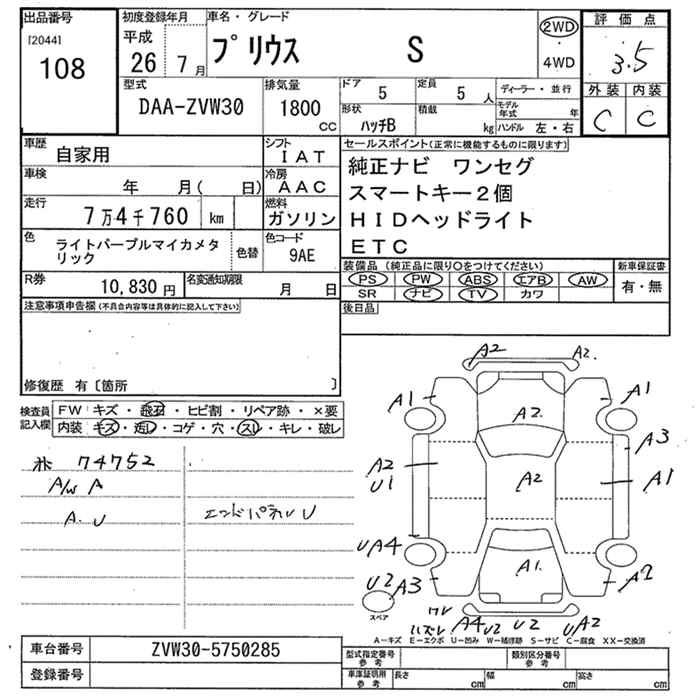 出品番号
[2044]
108
初度登録年月
平成
26 7 月
車名・グレード
プリウス S
2WD
・
4WD
評価点
3.5
外装 内装
C C
型式
DAA-ZVW30
排気量
1800
CC
ドア
5
定員
5 人
形状
ハッチB
積載
kg
ディーラー・並行
モデル年式 年
ハンドル 左・右
車歴
自家用
シフト
IAT
車検
年 月( 日)
冷房
AAC
走行
7万4千760 km
燃料
ガソリン
色
ライトパープルマイカメタリック
色替
色コード
9AE
R券
10,830 円
名変通知期限
月 日
セールスポイント(正常に機能するものに限ります)
純正ナビ ワンセグ
スマートキー2個
HIDヘッドライト
ETC
装備品(純正品に限り○をつけてください)
PS PW ABS エアB AW
SR ナビ TV カワ
新車保証書
有・無
後日品
注意事項申告欄(不具合内容等は具体的に記入して下さい)
修復歴 有〔箇所 〕
検査員記入欄
FW キズ・飛石・ヒビ割・リペア跡・×要
内装 キズ・汚レ・コゲ・穴・スレ・キレ・破レ
74752
A/W A
A.U
エンドパネル U
A2 A2.
A1 A2 A1
A3
A2 A2 A1
U1
UA4
U2 A3 A1. A2
スペア
ワレ
ハズレ A4 U2 U2 UA2
A-キズ E-エクボ U-凹み W-補修跡 S-サビ C-腐食 XX-交換済
車台番号
ZVW30-5750285
登録番号
型式指定番号
参考
類別区分番号
参考
車庫証明用
参考
長さ cm 幅 cm 高さ cm